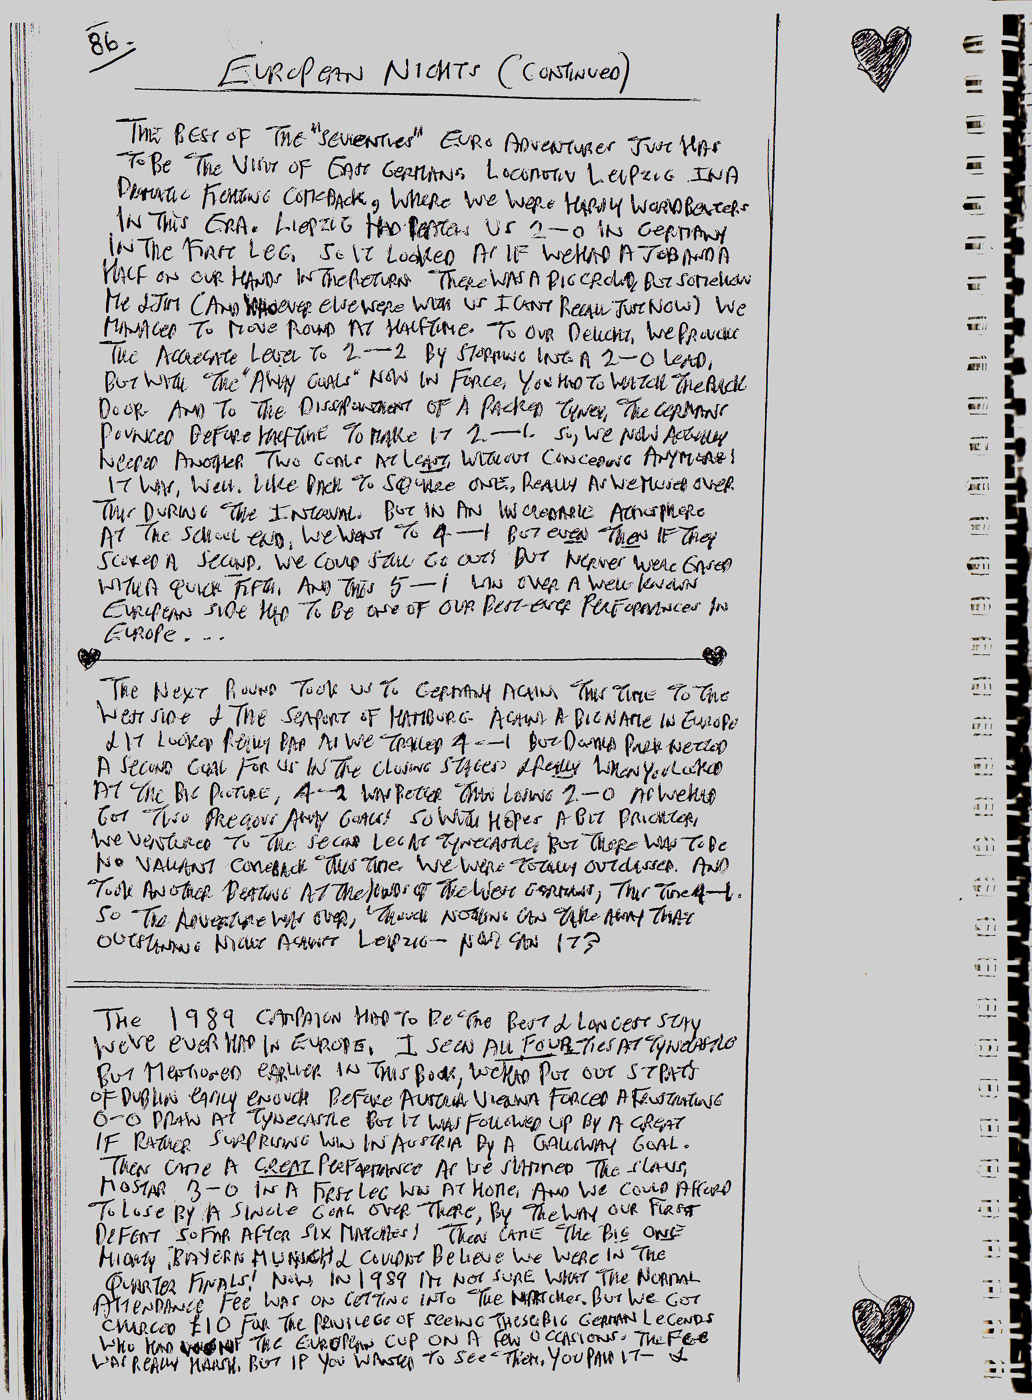 86.
EUROPEAN NIGHTS (CONTINUED)
THE BEST OF THE "SEVENTIES" EURO ADVENTURES JUST HAS
TO BE THE VISIT OF EAST GERMANS LOCOMOTIV LEIPZIG IN A
DRAMATIC FIGHTING COMEBACK, WHERE WE WERE HARDLY WORLDBEATERS
IN THIS ERA. LIEPZIG HAD BEATEN US 2-0 IN GERMANY
IN THE FIRST LEG, SO IT LOOKED AS IF WE HAD A JOB AND A
HALF ON OUR HANDS IN THE RETURN THERE WAS A BIG CROWD, BUT SOMEHOW
ME & JIM (AND WHOEVER ELSE WERE WITH US I CANT RECALL JUST NOW) WE
MANAGED TO MOVE ROUND AT HALFTIME. TO OUR DELIGHT, WE BROUGHT
THE AGGREGATE LEVEL TO 2-2 BY STORMING INTO A 2-0 LEAD,
BUT WITH THE "AWAY GOALS" NOW IN FORCE, YOU HAD TO WATCH THE BACK
DOOR AND TO THE DISSAPOINTMENT OF A PACKED TYNEY, THE GERMANS
POUNCED BEFORE HALFTIME TO MAKE IT 2-1. SO, WE NOW ACTUALLY
NEEDED ANOTHER TWO GOALS AT LEAST, WITHOUT CONCEDING ANYMORE!
IT WAS, WELL, LIKE BACK TO SQUARE ONE, REALLY AS WE MUSED OVER
THIS DURING THE INTERVAL. BUT IN AN INCREDABLE ATMOSPHERE
AT THE SCHOOL END, WE WENT TO 4-1 BUT EVEN THEN IF THEY
SCORED A SECOND, WE COULD STILL GO OUT! BUT NERVES WERE EASED
WITH A QUICK FIFTH, AND THIS 5-1 WIN OVER A WELL KNOWN
EUROPEAN SIDE HAD TO BE ONE OF OUR BEST-EVER PERFORMANCES IN
EUROPE....
THE NEXT ROUND TOOK US TO GERMANY AGAIN, THIS TIME TO THE
WEST SIDE & THE SEAPORT OF HAMBURG. AGAIN A BIG NAME IN EUROPE
& IT LOOKED REALLY BAD AS WE TRAILED 4-1 BUT DONALD PARK NETTED
A SECOND GOAL FOR US IN THE CLOSING STAGES & REALLY WHEN YOU LOOKED
AT THE BIG PICTURE, 4-2 WAS BETTER THAN LOSING 2-0 AS WE HAD
GOT TWO PRECIOUS AWAY GOALS! SO WITH HOPES A BIT BRIGHTER,
WE VENTURED TO THE SECOND LEG AT TYNECASTLE, BUT THERE WAS TO BE
NO VALIANT COMEBACK THIS TIME. WE WERE TOTALLY OUTCLASSED. AND
TOOK ANOTHER BEATING AT THE HANDS OF THE WEST GERMANS, THIS TIME 4-1.
SO THE ADVENTURE WAS OVER, THOUGH NOTHING CAN TAKE AWAY THAT
OUTSTANDING NIGHT AGAINST LEIPZIG - NOW CAN IT?
THE 1989 CAMPAIGN HAD TO BE THE BEST & LONGEST STAY
WE'VE EVER HAD IN EUROPE, I SEEN ALL FOUR TIES AT TYNECASTLE
BUT MENTIONED EARLIER IN THIS BOOK, WE HAD PUT OUT ST PATS
OF DUBLIN EASILY ENOUGH BEFORE AUSTRIA VIENNA FORCED A FRUSTRATING
0-0 DRAW AT TYNECASTLE BUT IT WAS FOLLOWED UP BY A GREAT
IF RATHER SURPRISING WIN IN AUSTRIA BY A GALLOWAY GOAL.
THEN CAME A GREAT PERFORMANCE AS WE SLAMMED THE SLAVS,
MOSTAR 3-0 IN A FIRST LEG WIN AT HOME, AND WE COULD AFFORD
TO LOSE BY A SINGLE GOAL OVER THERE, BY THE WAY OUR FIRST
DEFEAT SO FAR AFTER SIX MATCHES! THEN CAME THE BIG ONE
MIGHTY BAYERN MUNICH & COULDN'T BELIEVE WE WERE IN THE
QUARTER FINALS! NOW, IN 1989 I'M NOT SURE WHAT THE NORMAL
ATTENDANCE FEE WAS ON GETTING INTO THE MATCHES, BUT WE GOT
CHARGED £10 FOR THE PRIVILEGE OF SEEING THESE BIG GERMAN LEGENDS
WHO HAD WON THE EUROPEAN CUP ON A FEW OCCASIONS. THE FEE
WAS REALLY HARSH, BUT IF YOU WANTED TO SEE THEM, YOU PAID IT - &